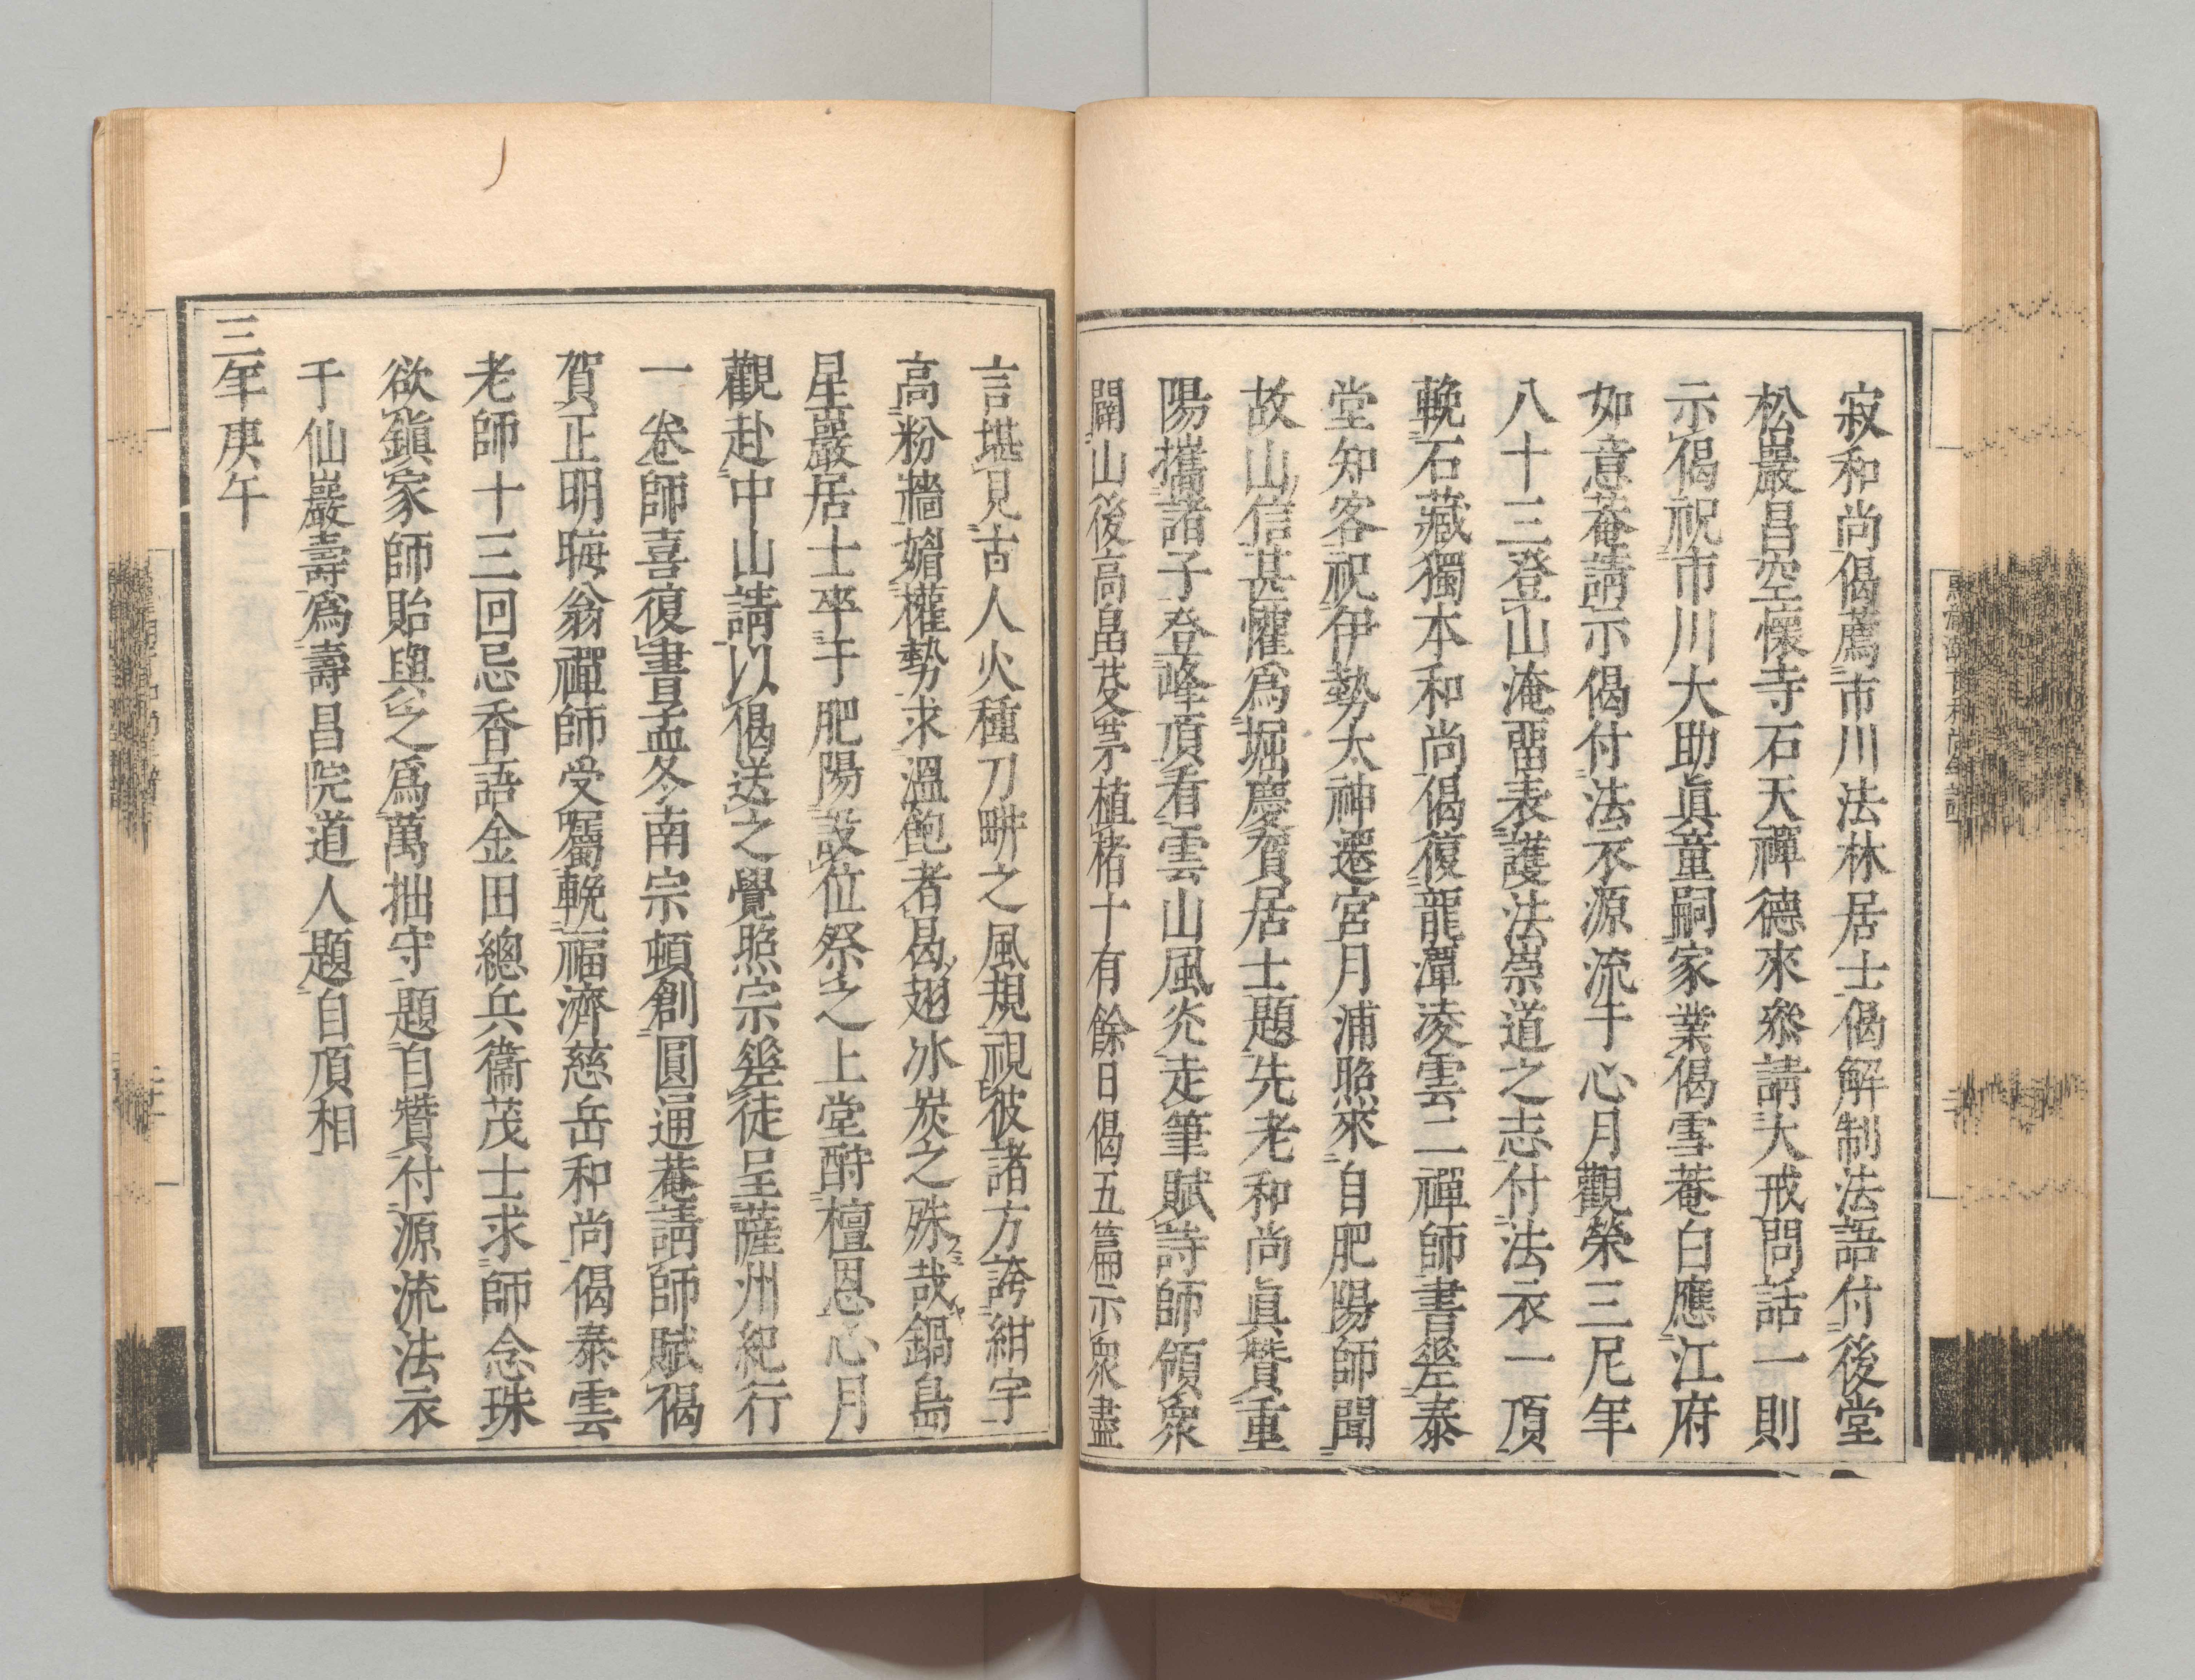 寂和尚偈薦市川法林居士偈解制法語付後堂
松巖昌空懷寺石天禪德來叅請大戒問話一則
示偈祝市川大助眞童嗣家業偈雪菴白應江府
如意菴請示偈付法衣源流于心月觀榮三尼年
八十三登山淹畱表護法崇道之志付法衣一頂
輓石藏獨本和尚偈復龍潭凌雲二禪師書㘴泰
堂知客祝伊勢太神遷宮月浦照來自肥陽師聞
故山信甚懽爲堀慶賀居士題先老和尚眞贊重
陽攜諸子登峰頂看雲山風炎走筆賦詩師領衆
闢山後高畠茇茅植楮十有餘日偈五篇示衆盡
言堪見古人火種刀畊之風規視彼諸方誇紺宇
高粉牆媚權勢求溫飽者曷翅冰炭之殊哉鍋島
星巖居士卒于肥陽設位祭之上堂酧檀恩心月
觀赴中山請以偈送之覺照宗㘴徒呈薩州紀行
一卷師喜復書孟冬南宗頓創圓通菴請師賦偈
賀正明晦翁禪師受屬輓福濟慈岳和尚偈泰雲
老師十三回忌香語金田總兵衞茂士求師念珠
欲鎭家師貽與之爲萬拙守題自贊付源流法衣
于仙巖壽爲壽昌院道人題自頂相
三年庚午